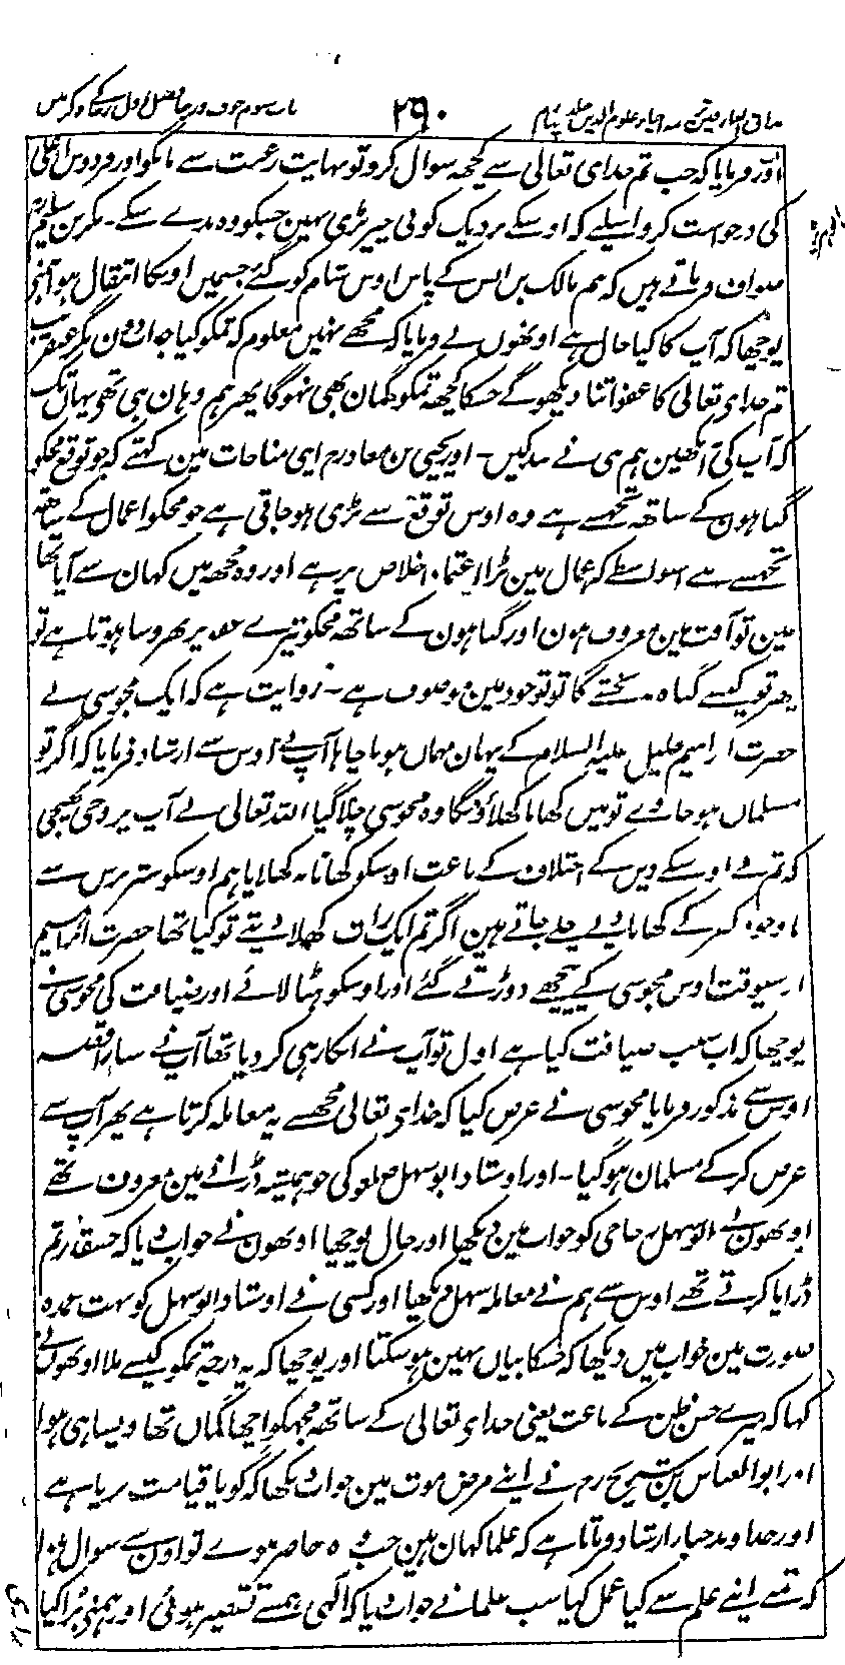 مذاق العارفین ترجمہ احیاء علوم الدین جلد چہارم
۲۹۰
باب سوم خوف ورجا فصل اول رجا کے ذکر میں
اور فرمایا کہ جب تم خدای تعالی سے کچھہ سوال کرو تو نہایت رغبت سے مانگو اور فردوس اعلی
کی درخواست کرو اسلیے کہ اوسکے نزدیک کوئی چیز بڑی نہین جسکو وہ ندے سکے - بکر بن سلیم
صواف فرماتے ہیں کہ ہم مالک بن انس کے پاس اوس شام کو گئے جسمیں اونکا انتقال ہوا ہمنے
پوچھا کہ آپ کا کیا حال ہے اونھوں نے فرمایا کہ مجھے نہیں معلوم کہ تمکو کیا جواب دون مگر عنقریب
تم خدای تعالی کا عفو اتنا دیکھو گے جسکا کچھہ تمکو گمان بھی نہوگا پھر ہم وہان ہی تھے یہاں تک
کہ آپ کی آنکھین ہم ہی نے بند کیں - اور یحیی بن معاذ رح اپنی مناجات مین کہتے کہ جو توقع مجکو
گناہون کے ساتھہ تجھسے ہے وہ اوس توقع سے بڑی ہوجاتی ہے جو مجکو اعمال کے ساتھہ
تجھسے ہے اسواسطے کہ اعمال مین بڑا اعتماد اخلاص پر ہے اور وہ مجھہ میں کہان سے آیا تھا
مین تو آفت مین معروف ہون اور گناہون کے ساتھہ مجکو تیرے عفو پر بھروسا ہوتا ہے تو
پھر تو کیسے گناہ نہ بخشے گا تو تو جود مین موصوف ہے - روایت ہے کہ ایک مجوسی نے
حضرت ابراہیم خلیل علیہ السلام کے یہان مہمان ہونا چاہا آپ نے اوس سے ارشاد فرمایا کہ اگر تو
مسلمان ہوجاوے تو میں کھانا کھلاؤنگا وہ مجوسی چلا گیا اللہ تعالی نے آپ پر وحی بھیجی
کہ تم نے اوسکے دین کے اختلاف کے باعث اوسکو کھانا نہ کھلایا ہم اوسکو ستر برس سے
باوجود کفر کے کھانا دیے چلے جاتے ہین اگر تم ایک رات کھلا دیتے تو کیا تھا حضرت ابراہیم
اوسیوقت اوس مجوسی کے پیچھے دوڑتے گئے اور اوسکو ہٹا لائے اور ضیافت کی مجوسی نے
پوچھا کہ اب سبب ضیافت کیا ہے اول تو آپ نے انکار ہی کردیا تھا آپ نے سارا قصہ
اوس سے مذکور فرمایا مجوسی نے عرض کیا کہ خدای تعالی مجھسے یہ معاملہ کرتا ہے پھر آپ سے
عرض کرکے مسلمان ہوگیا - اور اوستاد ابو سہل صعلوکی جو ہمیشہ ڈرانے مین معروف تھے
اونھون نے ابو سہل زجاجی کو خواب مین دیکھا اور حال پوچھا اونھون نے جواب دیا کہ جسقدر تم
ڈرایا کرتے تھے اوس سے ہم نے معاملہ سہل دیکھا اور کسی نے اوستاد ابو سہل کو بہت عمدہ
صورت مین خواب میں دیکھا کہ جسکا بیان نہین ہوسکتا اور پوچھا کہ یہ درجہ تمکو کیسے ملا اونھون نے
کہا کہ میرے حسن ظن کے باعث یعنی خدای تعالی کے ساتھہ مجھکو اچھا گمان تھا ویسا ہی ہوا
اور ابو العباس بن سریج رح نے اپنے مرض موت مین خواب دیکھا کہ گویا قیامت برپا ہے
اور خداوند جبار ارشاد فرماتا ہے کہ علما کہان ہین جب وہ حاضر ہوے تو اون سے سوال ہوا
کہ تمنے اپنے علم سے کیا عمل کیا سب علما نے جواب دیا کہ الہی ہمسے تقصیر ہوئی اور ہمنے برا کیا